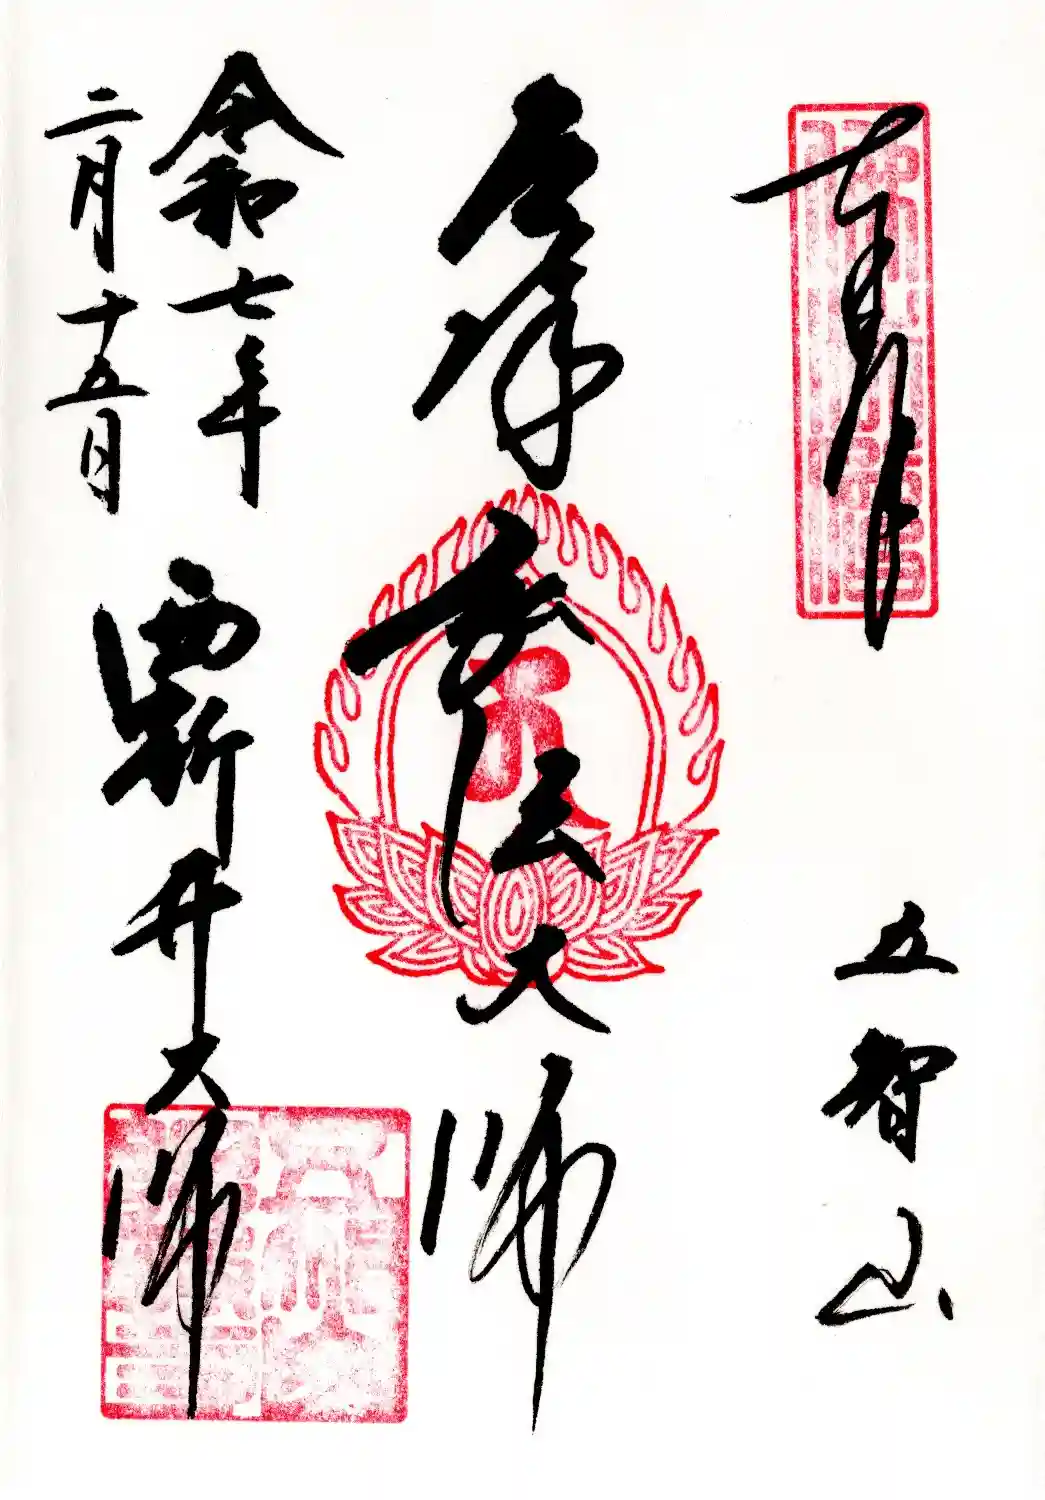 奉拝
五智山
厄除弘法大師
令和七年
二月十五日
西新井大師